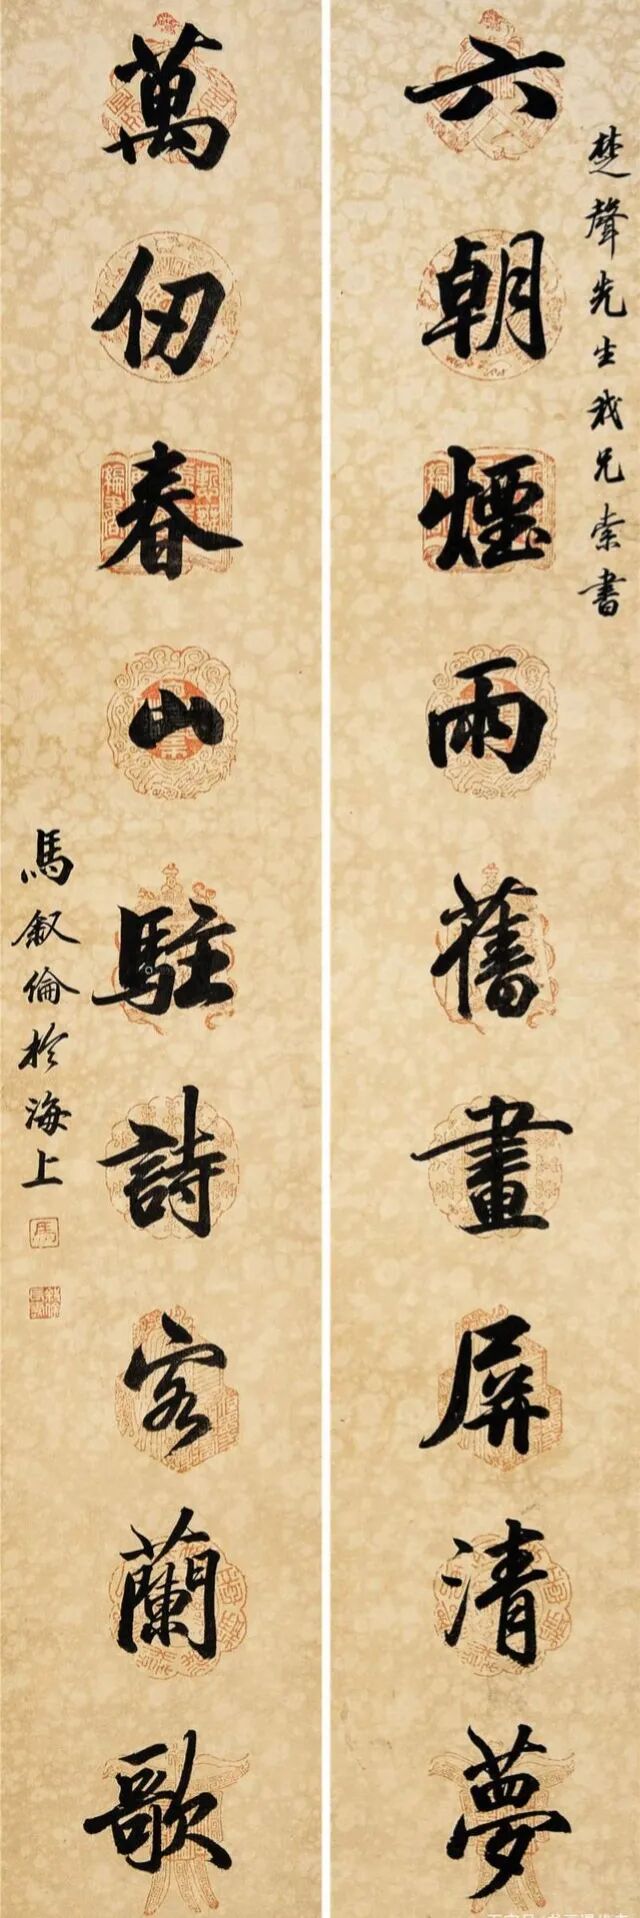 楚聲先生我兄索書
六朝煙雨舊畫屏清夢
萬仞春山駐詩客蘭歌
馬敘倫於海上
馬